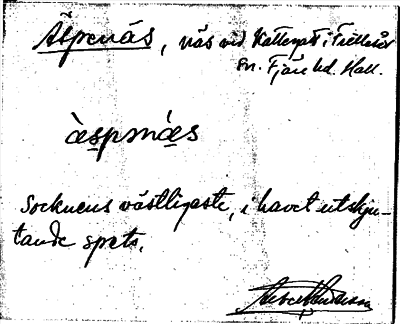 Äspenäs, näs vid Kattegatt i Fjällås
sn. Fjäre hd. Hall.
àspnǽs
Socknens västligaste, i havet utskju-
tande spets.